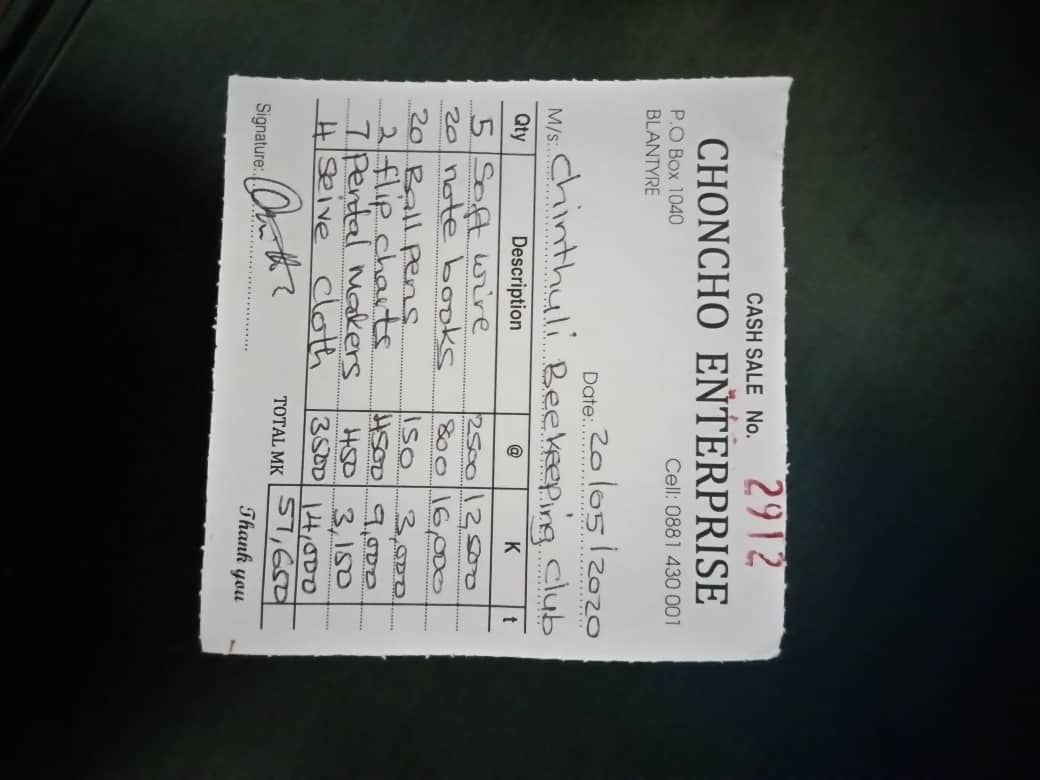 CASH SALE No. 2912
CHONCHO ENTERPRISE
P.O Box 1040 Cell: 0881 430 001
BLANTYRE
Date: 20/05/2020
M/s: Chinthuli Beekeeping club
Qty Description @ K t
5 Soft wire 2500 12,500
20 note books 800 16,000
20 Ball pens 150 3,000
2 flip charts 4500 9,000
7 Pental makers 450 3,150
4 Seive cloth 3500 14,000
TOTAL MK 57,650
Signature:
Thank you